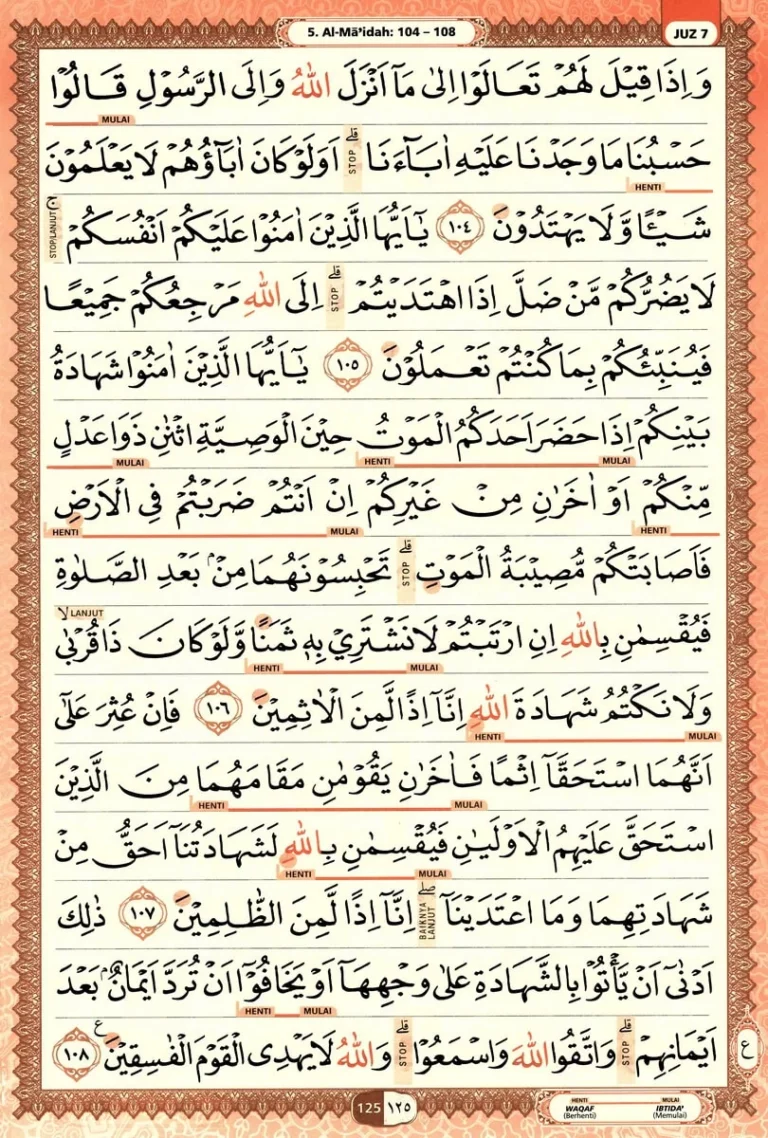 5. Al-Mā'idah: 104 – 108
JUZ 7
وَاِذَا قِيْلَ لَهُمْ تَعَالَوْا اِلٰى مَآ اَنْزَلَ اللّٰهُ وَاِلَى الرَّسُوْلِ قَالُوْا
MULAI
حَسْبُنَا مَا وَجَدْنَا عَلَيْهِ اٰبَاۤءَنَا ۗ اَوَلَوْ كَانَ اٰبَاۤؤُهُمْ لَا يَعْلَمُوْنَ
STOP HENTI
شَيْـًٔا وَّلَا يَهْتَدُوْنَ ١٠٤ يٰٓاَيُّهَا الَّذِيْنَ اٰمَنُوْا عَلَيْكُمْ اَنْفُسَكُمْ ۚ
STOP/LANJUT
لَا يَضُرُّكُمْ مَّنْ ضَلَّ اِذَا اهْتَدَيْتُمْ ۗ اِلَى اللّٰهِ مَرْجِعُكُمْ جَمِيْعًا
STOP
فَيُنَبِّئُكُمْ بِمَا كُنْتُمْ تَعْمَلُوْنَ ١٠٥ يٰٓاَيُّهَا الَّذِيْنَ اٰمَنُوْا شَهَادَةُ
بَيْنِكُمْ اِذَا حَضَرَ اَحَدَكُمُ الْمَوْتُ حِيْنَ الْوَصِيَّةِ اثْنٰنِ ذَوَا عَدْلٍ
MULAI HENTI MULAI
مِّنْكُمْ اَوْ اٰخَرٰنِ مِنْ غَيْرِكُمْ اِنْ اَنْتُمْ ضَرَبْتُمْ فِى الْاَرْضِ
HENTI MULAI HENTI
فَاَصَابَتْكُمْ مُّصِيْبَةُ الْمَوْتِ ۗ تَحْبِسُوْنَهُمَا مِنْۢ بَعْدِ الصَّلٰوةِ
STOP
LANJUT
فَيُقْسِمٰنِ بِاللّٰهِ اِنِ ارْتَبْتُمْ لَا نَشْتَرِيْ بِهٖ ثَمَنًا وَّلَوْ كَانَ ذَا قُرْبٰىۙ
MULAI HENTI
وَلَا نَكْتُمُ شَهَادَةَ اللّٰهِ اِنَّآ اِذًا لَّمِنَ الْاٰثِمِيْنَ ١٠٦ فَاِنْ عُثِرَ عَلٰٓى
MULAI HENTI
اَنَّهُمَا اسْتَحَقَّآ اِثْمًا فَاٰخَرٰنِ يَقُوْمٰنِ مَقَامَهُمَا مِنَ الَّذِيْنَ
MULAI HENTI
اسْتَحَقَّ عَلَيْهِمُ الْاَوْلَيٰنِ فَيُقْسِمٰنِ بِاللّٰهِ لَشَهَادَتُنَآ اَحَقُّ مِنْ
MULAI HENTI
شَهَادَتِهِمَا وَمَا اعْتَدَيْنَآ ۖ اِنَّآ اِذًا لَّمِنَ الظّٰلِمِيْنَ ١٠٧ ذٰلِكَ
BAIKNYA LANJUT
اَدْنٰٓى اَنْ يَّأْتُوْا بِالشَّهَادَةِ عَلٰى وَجْهِهَآ اَوْ يَخَافُوْٓا اَنْ تُرَدَّ اَيْمَانٌۢ بَعْدَ
MULAI HENTI
اَيْمَانِهِمْ ۗ وَاتَّقُوا اللّٰهَ وَاسْمَعُوْا ۗ وَاللّٰهُ لَا يَهْدِى الْقَوْمَ الْفٰسِقِيْنَ ࣖ ١٠٨
STOP STOP
ع
125 ١٢٥
HENTI MULAI
WAQAF IBTIDA'
(Berhenti) (Memulai)